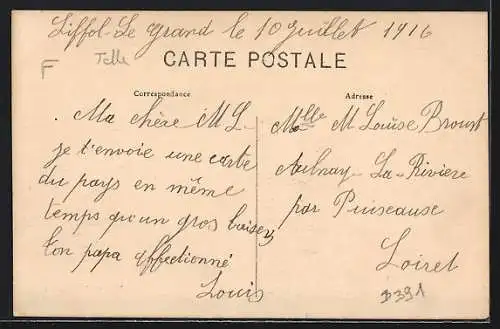 Liffol-Le Grand le 10 Juillet 1916
F
CARTE POSTALE
Correspondance
Adresse
Ma chère ML
je t'envoie une carte
du pays en même
temps qu'un gros baisers
ton papa affectionné
Louis
Mlle M Louise Broust
Aulnay-La-Riviere
par Puiseause
Loiret